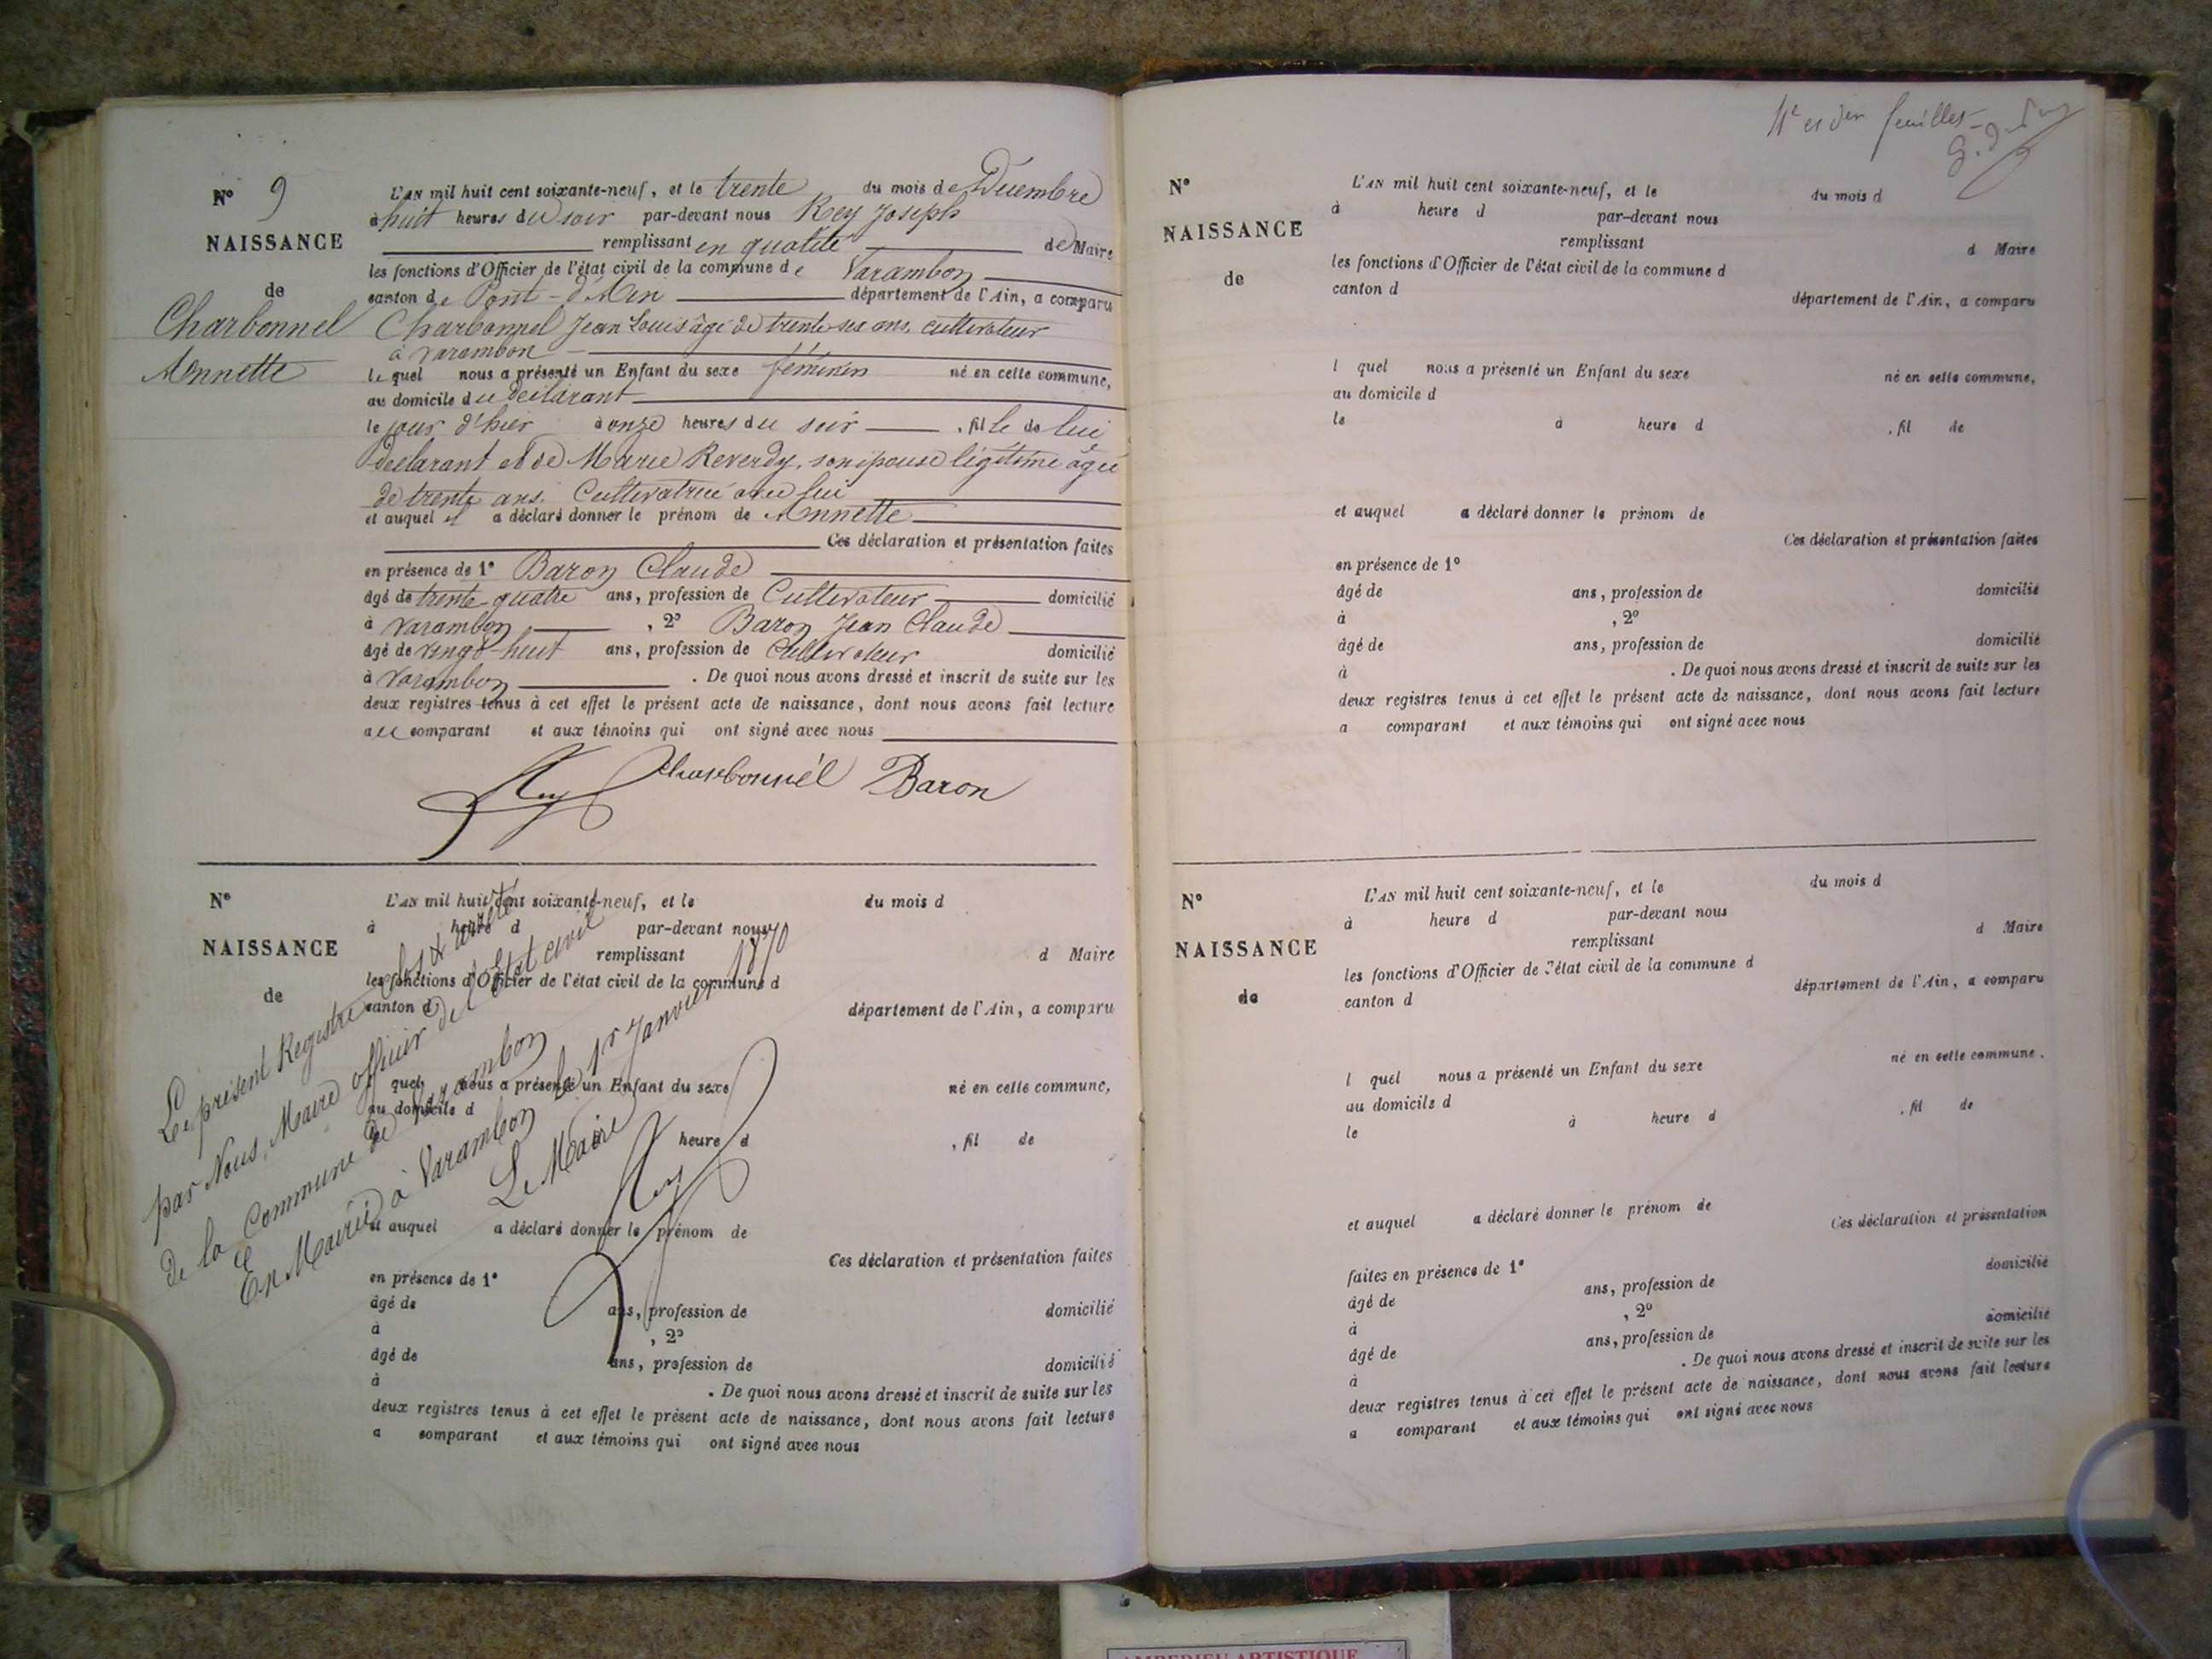 N° 9
NAISSANCE
de
Charbonnel
Annette
L'AN mil huit cent soixante-neuf, et le trente du mois de Décembre
à huit heures du soir par-devant nous Rey Joseph
remplissant en qualité de Maire
les fonctions d'Officier de l'état civil de la commune de Varambon
canton de Pont-d'Ain département de l'Ain, a comparu
Charbonnel Jean Louis âgé de trente six ans, cultivateur
à Varambon
lequel nous a présenté un Enfant du sexe féminin né en cette commune,
au domicile du déclarant
le jour d'hier à onze heures du soir , fille de lui
declarant et de Marie Reverdy, son épouse légitime âgée
de trente ans. Cultivatrice avec lui
et auquel il a déclaré donner le prénom de Annette
Ces déclaration et présentation faites
en présence de 1° Baron Claude
âgé de trente quatre ans, profession de Cultivateur domicilié
à Varambon , 2° Baron Jean Claude
âgé de vingt-huit ans, profession de Cultivateur domicilié
à Varambon . De quoi nous avons dressé et inscrit de suite sur les
deux registres tenus à cet effet le présent acte de naissance, dont nous avons fait lecture
au comparant et aux témoins qui ont signé avec nous
Rey Charbonnél Baron
N°
NAISSANCE
de
L'AN mil huit cent soixante-neuf, et le du mois d
à heure d par-devant nous
remplissant d Maire
les fonctions d'Officier de l'état civil de la commune d
canton d
département de l'Ain, a comparu
quel nous a présenté un Enfant du sexe né en cette commune,
au domicile d
heure d , fil de
et auquel a déclaré donner le prénom de
Ces déclaration et présentation faites
en présence de 1°
âgé de ans, profession de domicilié
à , 2°
âgé de ans, profession de domicilié
à . De quoi nous avons dressé et inscrit de suite sur les
deux registres tenus à cet effet le présent acte de naissance, dont nous avons fait lecture
a comparant et aux témoins qui ont signé avec nous
Le présent Registre clos & arrêté
par Nous, Maire officier de l'Etat civil
de la Commune de Varambon
En Mairie à Varambon le 1er Janvier 1870
Le Maire
Rey
feuilles
N°
NAISSANCE
de
L'AN mil huit cent soixante-neuf, et le du mois d
à heure d par-devant nous
remplissant d Maire
les fonctions d'Officier de l'état civil de la commune d
canton d
département de l'Ain, a comparu
l quel nous a présenté un Enfant du sexe né en cette commune,
au domicile d
le à heure d , fil de
et auquel a déclaré donner le prénom de
Ces déclaration et présentation faites
en présence de 1°
âgé de ans, profession de domicilié
à , 2°
âgé de ans, profession de domicilié
à . De quoi nous avons dressé et inscrit de suite sur les
deux registres tenus à cet effet le présent acte de naissance, dont nous avons fait lecture
a comparant et aux témoins qui ont signé avec nous
N°
NAISSANCE
de
L'AN mil huit cent soixante-neuf, et le du mois d
à heure d par-devant nous
remplissant d Maire
les fonctions d'Officier de l'état civil de la commune d
canton d département de l'Ain, a comparu
l quel nous a présenté un Enfant du sexe né en cette commune.
au domicile d
le à heure d , fil de
et auquel a déclaré donner le prénom de
Ces déclaration et présentation
faites en présence de 1°
âgé de ans, profession de domicilié
à , 2°
âgé de ans, profession de domicilié
à . De quoi nous avons dressé et inscrit de suite sur les
deux registres tenus à cet effet le présent acte de naissance, dont nous avons fait lecture
a comparant et aux témoins qui ont signé avec nous
AMBERIEU ARTISTIQUE